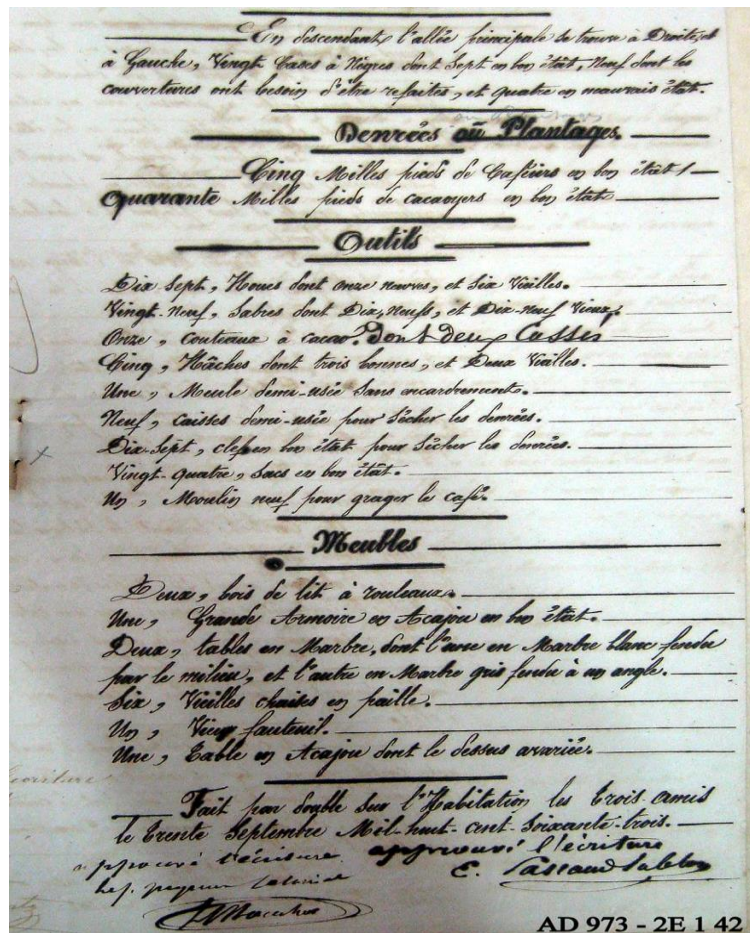 En descendant l'allée principale se trouve à Droite, et
à Gauche, Vingt Cases à Nègres dont Sept en bon état, Neuf dont les
couvertures ont besoin d'être refaites, et quatre en mauvais état.
Denrées où Plantages.
Cinq Milles pieds de Caféiers en bon état /
Quarante Milles pieds de cacaoyers en bon état
Outils
Dix Sept, Houes dont onze neuves, et Six Vieilles.
Vingt-Neuf, Sabres dont Dix, Neufs, et Dix-neuf Vieux.
Onze, couteaux à cacao. Dont deux Cassés
Cinq, Hâches dont trois bonnes, et Deux Vieilles.
Une, Meule demi-usée Sans encadrement.
Neuf, caisses demi-usée pour Sécher les denrées.
Dix-Sept, clefs en bon état pour Sécher les denrées.
Vingt-quatre, Sacs en bon état.
Un, Moulin neuf pour grager le café.
Meubles
Deux, bois de lit à rouleaux.
Une, Grande Armoire en Acajou en bon état.
Deux, tables en Marbre, dont l'une en Marbre blanc fendu
par le milieu, et l'autre en Marbre gris fendu à un angle.
Six, Vieilles chaises en paille.
Un, Vieux fauteuil.
Une, Table en Acajou dont le dessus avarié.
Fait par double sur l'Habitation les Trois amis
le Trente Septembre Mil-huit-cent-Soixante-trois.
approuvé l'écriture
approuvé l'écriture
E.
AD 973 - 2E 1 42